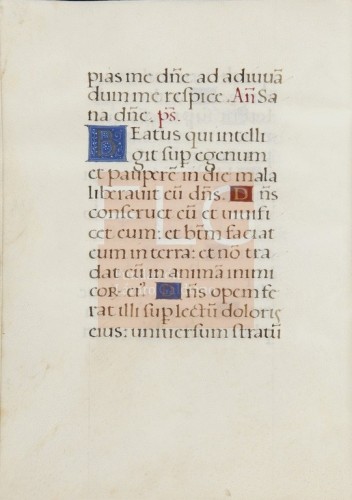 pias me dn̄e ad adiuuā
dum me respice. An̄ Sa
na dn̄e. ps̄.
Beatus qui intelli
git sup egenum
et pauperē in die mala
liberauit eū dn̄s. Dn̄s
conseruet eū et uiuifi
cet eum: et btm̄ faciat
eum in terra: et nō tra
dat eū in animā inimi
cor. ei'. Dn̄s opem fe
rat illi sup lectū doloris
eius: uniuersum stratū
FLG